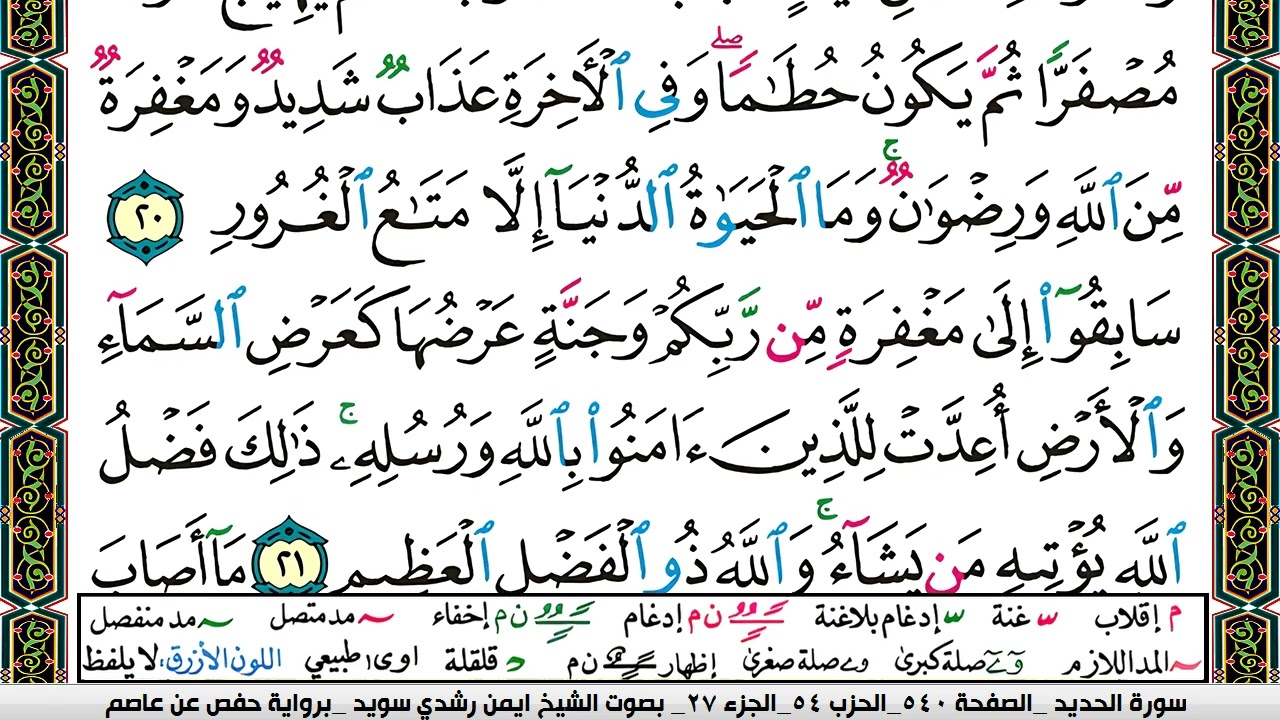 مُصۡفَرًّا ثُمَّ يَكُونُ حُطَٰمًاۖ وَفِي ٱلۡأٓخِرَةِ عَذَابٞ شَدِيدٞ وَمَغۡفِرَةٞ
مِّنَ ٱللَّهِ وَرِضۡوَٰنٞۚ وَمَا ٱلۡحَيَوٰةُ ٱلدُّنۡيَآ إِلَّا مَتَٰعُ ٱلۡغُرُورِ ٢٠
سَابِقُوٓاْ إِلَىٰ مَغۡفِرَةٖ مِّن رَّبِّكُمۡ وَجَنَّةٍ عَرۡضُهَا كَعَرۡضِ ٱلسَّمَآءِ
وَٱلۡأَرۡضِ أُعِدَّتۡ لِلَّذِينَ ءَامَنُواْ بِٱللَّهِ وَرُسُلِهِۦۚ ذَٰلِكَ فَضۡلُ
ٱللَّهِ يُؤۡتِيهِ مَن يَشَآءُۚ وَٱللَّهُ ذُو ٱلۡفَضۡلِ ٱلۡعَظِيمِ ٢١ مَآ أَصَابَ
م إقلاب غنة إدغام بلاغنة ن م إدغام ن م إخفاء مد متصل مد منفصل
المد اللازم صلة كبرى صلة صغرى إظهار ن م قلقلة اوى طبيعي اللون الأزرق، لا يلفظ
سورة الحديد _الصفحة ٥٤٠_الحزب ٥٤_الجزء ٢٧_ بصوت الشيخ ايمن رشدي سويد _برواية حفص عن عاصم